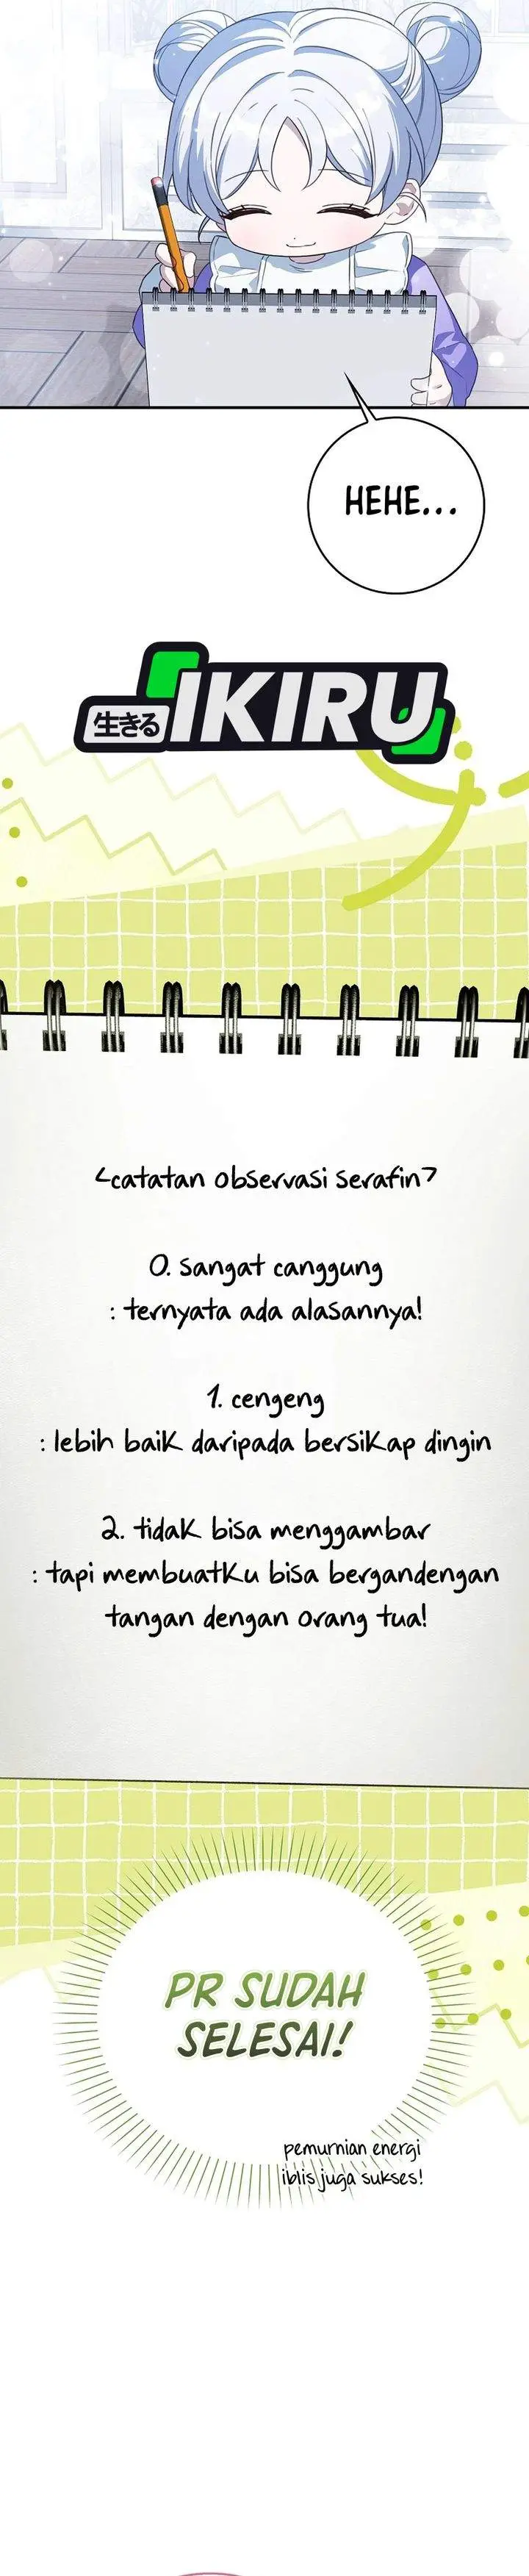 HEHE...
生きる IKIRU
<catatan observasi serafin>
0. sangat canggung
: ternyata ada alasannya!
1. cengeng
: lebih baik daripada bersikap dingin
2. tidak bisa menggambar
: tapi membuatku bisa bergandengan
tangan dengan orang tua!
PR SUDAH
SELESAI!
pemurnian energi
iblis juga sukses!